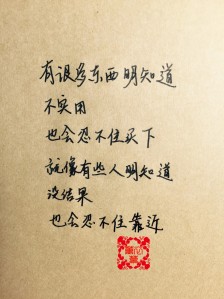 有很多东西明知道
不实用
也会忍不住买下
就像有些人明知道
没结果
也会忍不住靠近